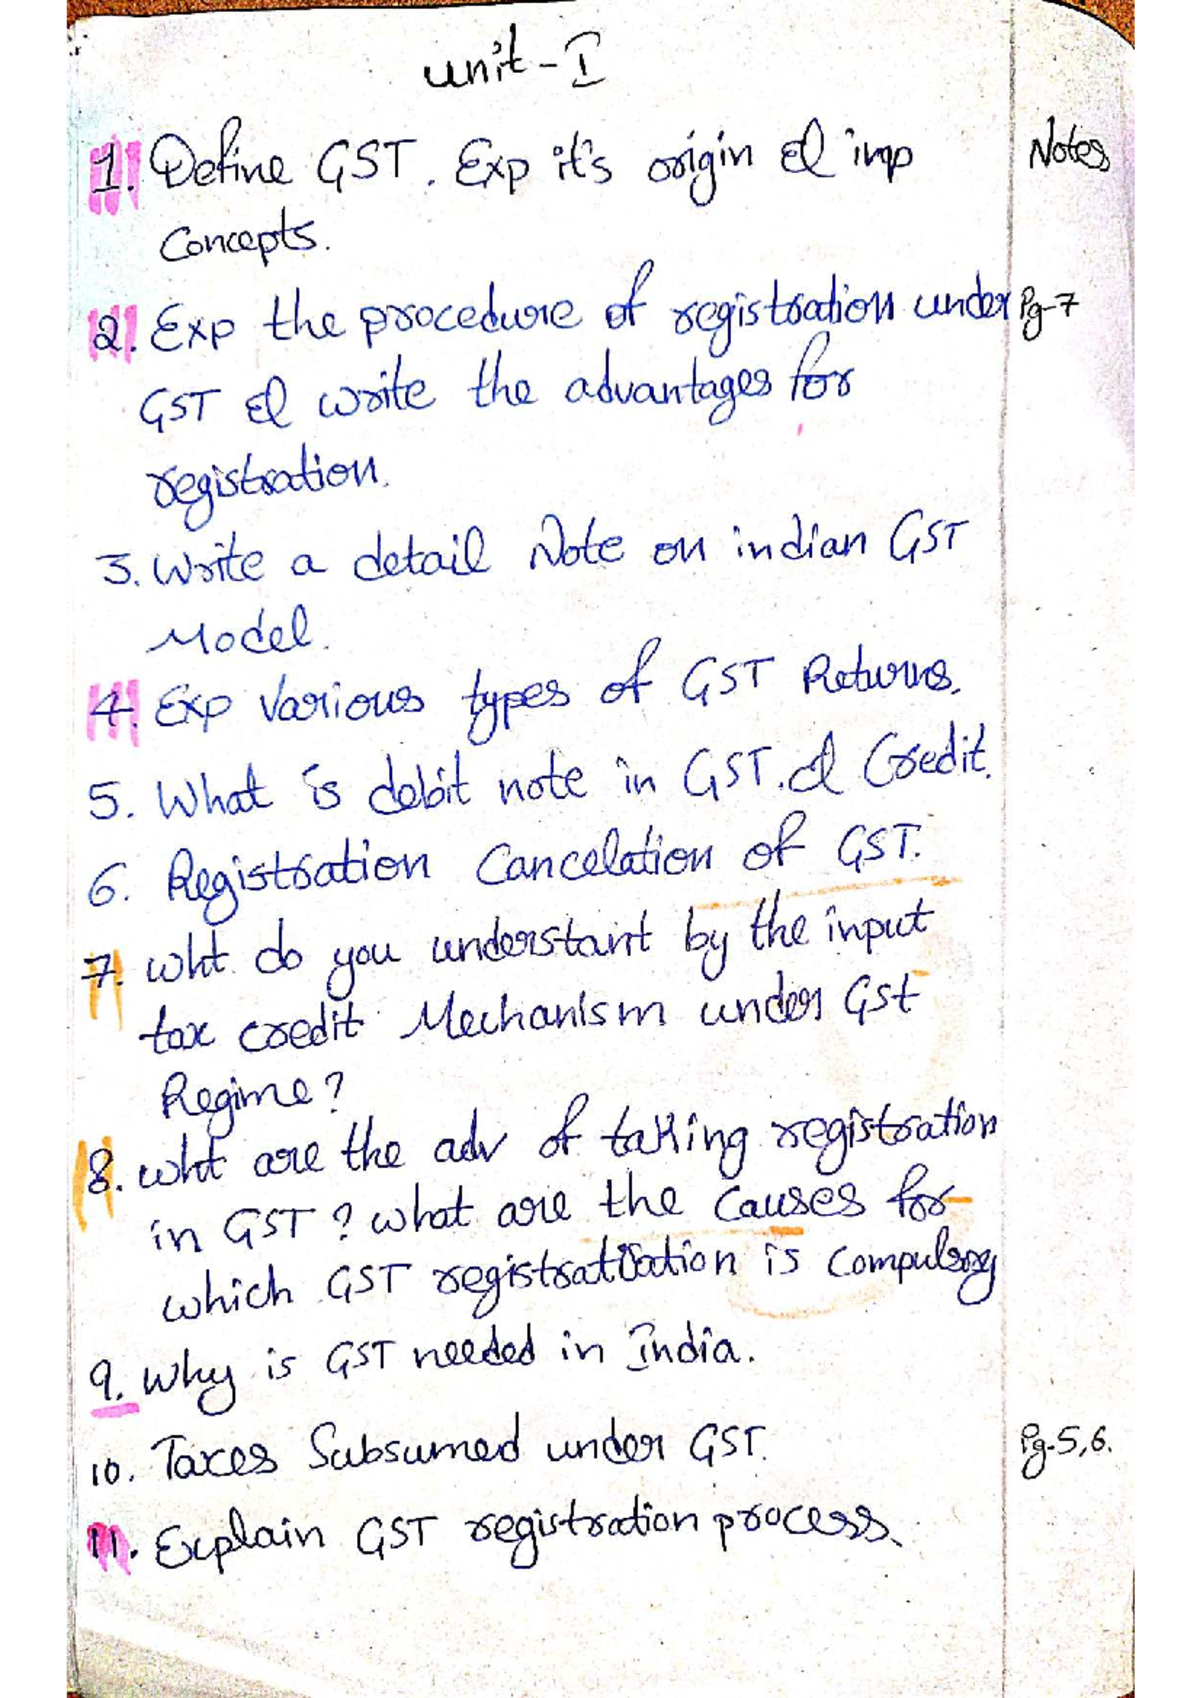 unit - I
1. Define GST. Exp it's origin & imp Notes
Concepts.
2. Exp the procedure of registration under Pg-7
GST & write the advantages for
registration.
3. Write a detail Note on indian GST
Model.
4. Exp Various types of GST Returns.
5. What is debit note in GST. & Credit.
6. Registration Cancelation of GST.
7. wht do you understant by the input
tax credit Mechanism under Gst
Regime?
8. wht are the adv of taking registration
in GST? what are the causes for
which GST registratiation is compulsory
9. Why is GST needed in India.
10. Taxes Subsumed under GST. Pg-5,6.
11. Explain GST registration process.